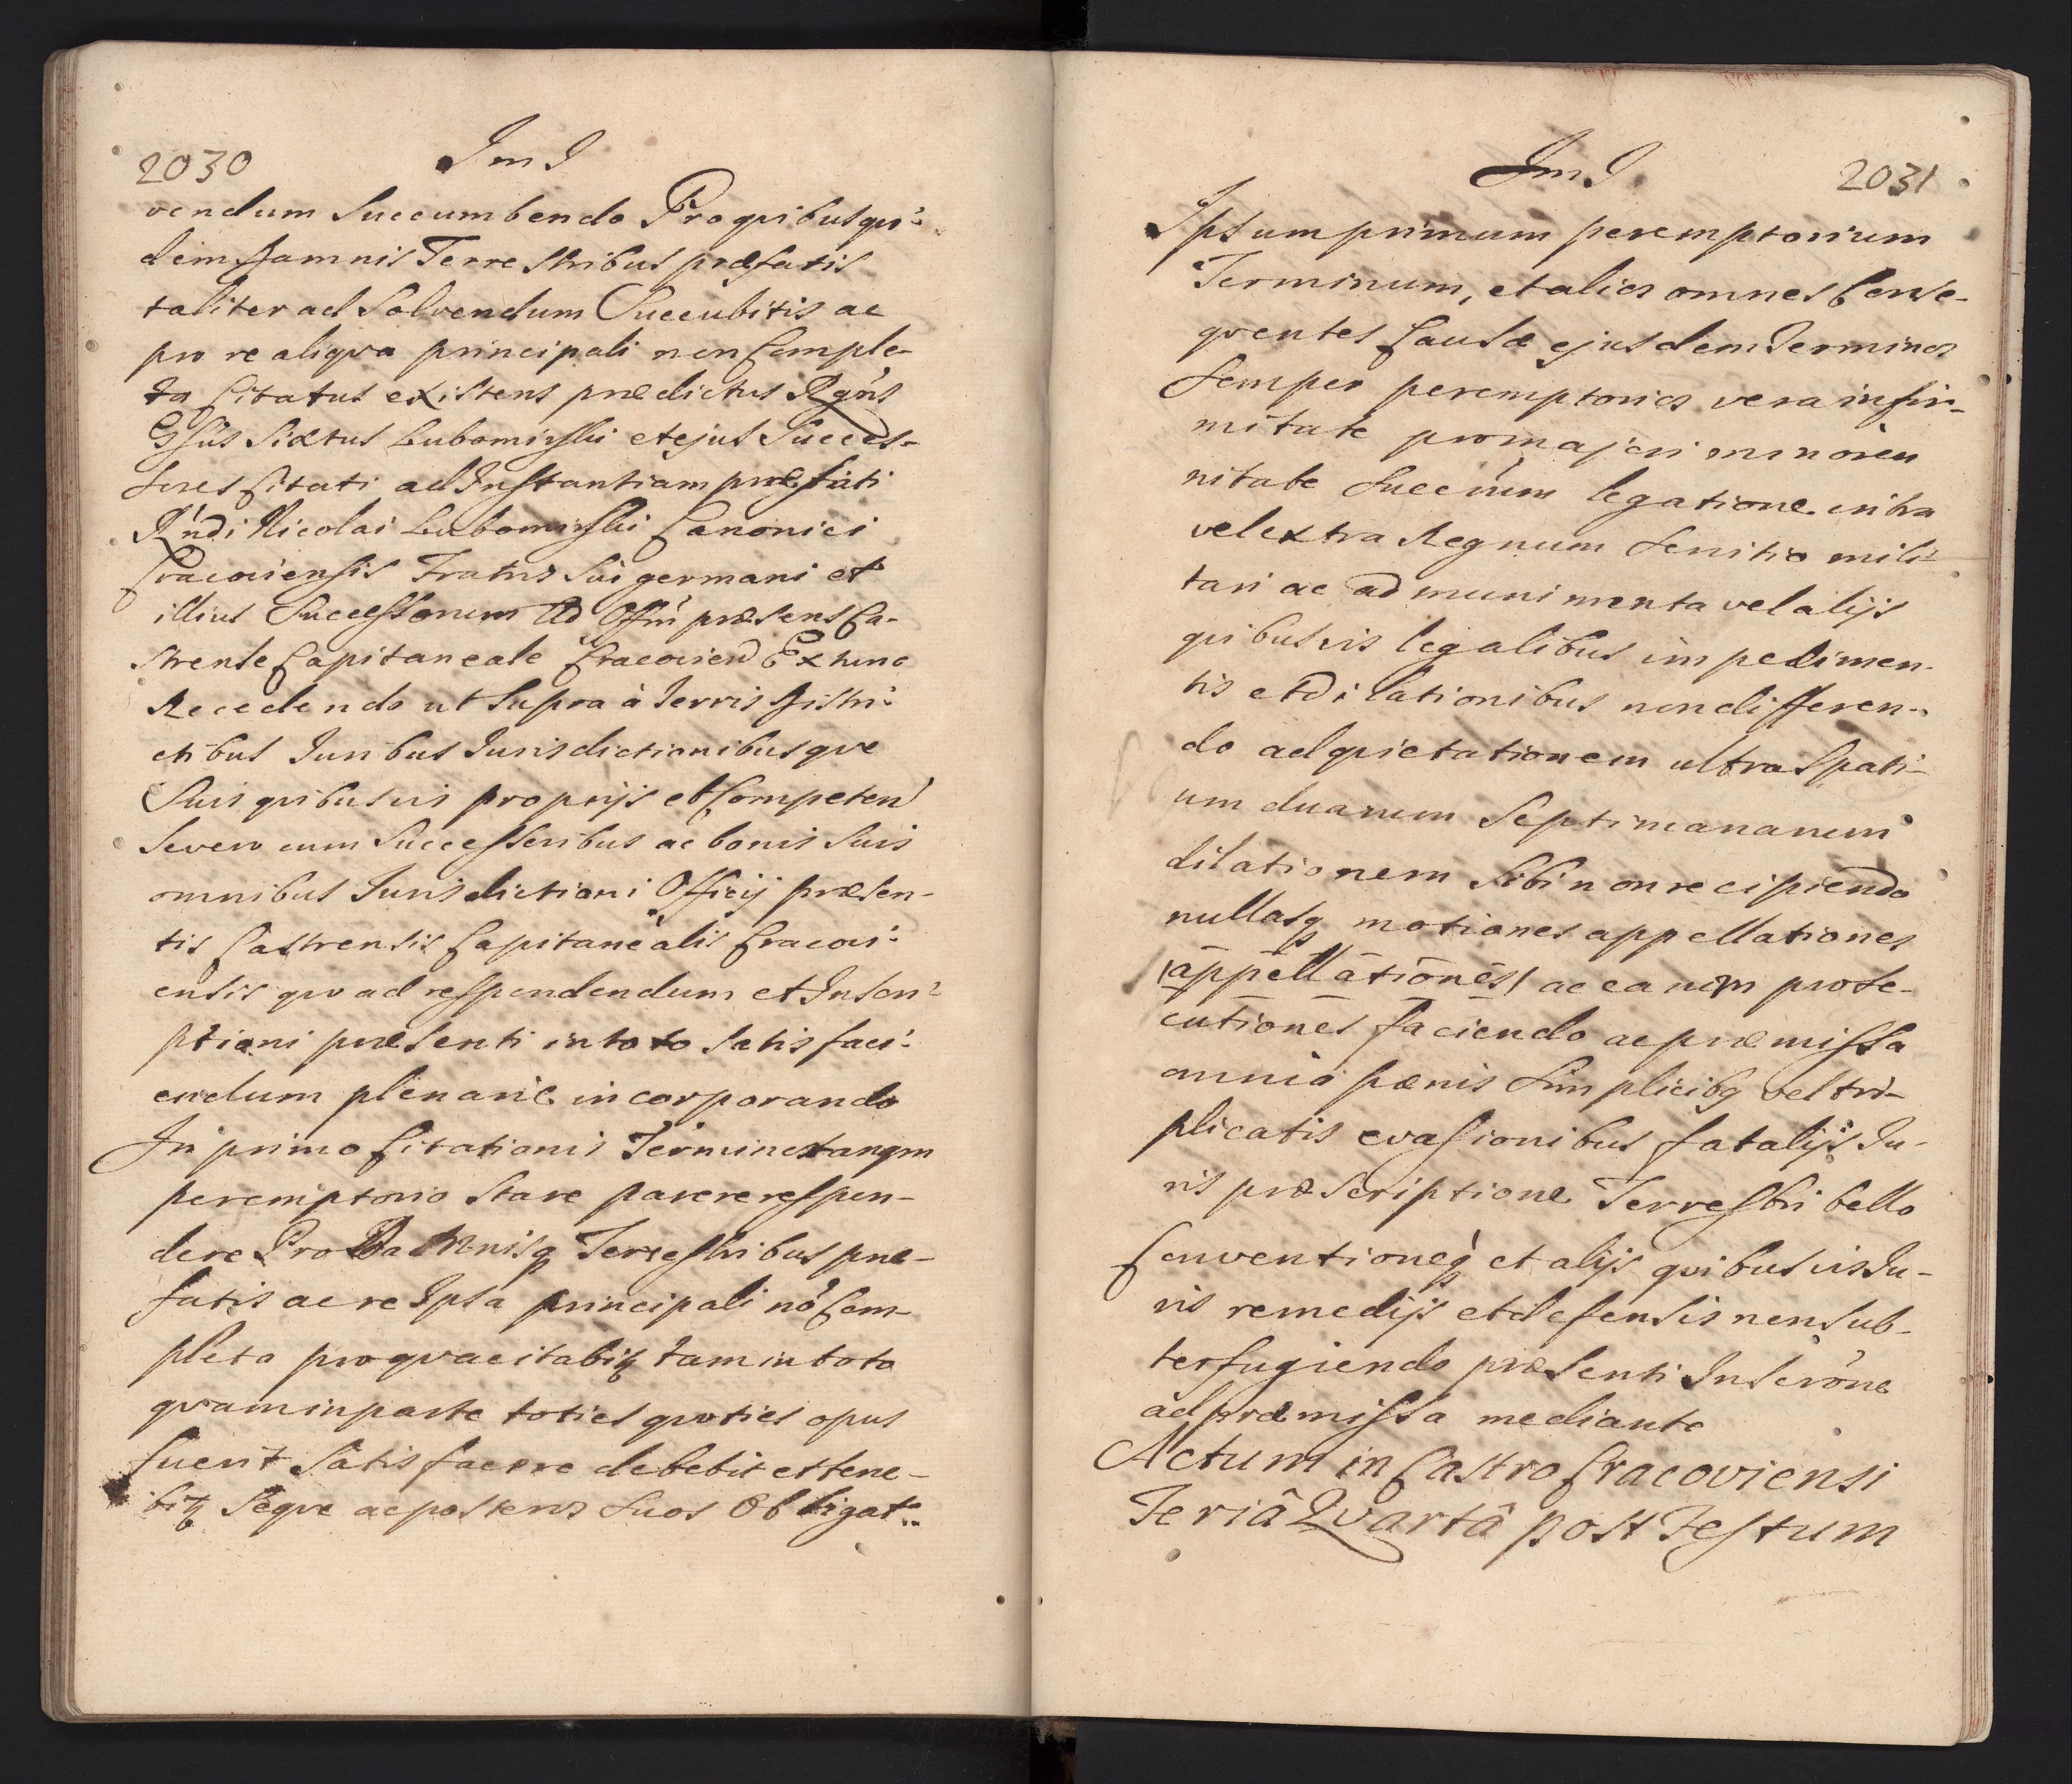 2030
JmJ
vendum Succumbendo Pro quibus qui-
dem Damnis Terrestribus præfatis
taliter ad Solvendum Succubitis ac
pro re aliqva principali non Comple-
ta Citatus existens prædictus Mgcus
Gsus Sixtus Lubomirski et ejus Succes-
sores Citati ad Instantiam præfati
Rndi Nicolai Lubomirski Canonici
Cracoviensis Fratris Sui germani et
illius Successorum Ad Offm præsens Ca-
strense Capitaneale Cracovien Ex tunc
Recedendo ut Supra à Terris Distri-
ctibus Juribus Jurisdictionibusque
Suis quibusvis proprijs et Competen
Severo cum Successoribus ac bonis Suis
omnibus Jurisdictioni Officij præsen-
tis Castrensis Capitanealis Cracovi-
ensis quo ad respondendum et Inscri-
ptioni præsenti in toto Satisfaci-
endum plenarie incorporando
In primo Citationis Termino tanqm
peremptorio Stare parere respon-
dere Pro Damnisq Terrestribus præ-
fatis ac re Ipsa principali nō Com-
pleta pro qva citabitq tam in toto
qvam in parte toties quoties opus
fuerit Satisfacere debebit et tene-
bitq Seque ac posteros Suos Obligat.
JmJ
2031
Ipsum primum peremptorium
Terminum, et alios omnes Conse-
qventes Causæ ejusdem Terminos
Semper peremptorios vera infir-
mitate pro majori minoren
nitate Succūm legatione intra
vel extra Regnum Servitio mili-
tari ac ad munimenta vel alijs
quibusvis legalibus impedimen-
tis et dilationibus non differen-
do ad quietationem ultra Spati-
um duarum Septimanarum
dilationem Sibi non recipiendo
nullasq motiones appellationes
/appellationes/ ac earum prose-
cutiones faciendo ac præmissa
omnia pænis Simplicibq vel tri-
plicatis evasionibus fatalijs Ju-
ris præscriptione Terrestri bello
Conventioneq et alijs quibusvis Ju-
ris remedijs et defensis non Sub-
terfugiendo præsenti Inscrōne
ad præmissa mediante
Actum in Castro Cracoviensi
Feriâ Qvartâ post Festum